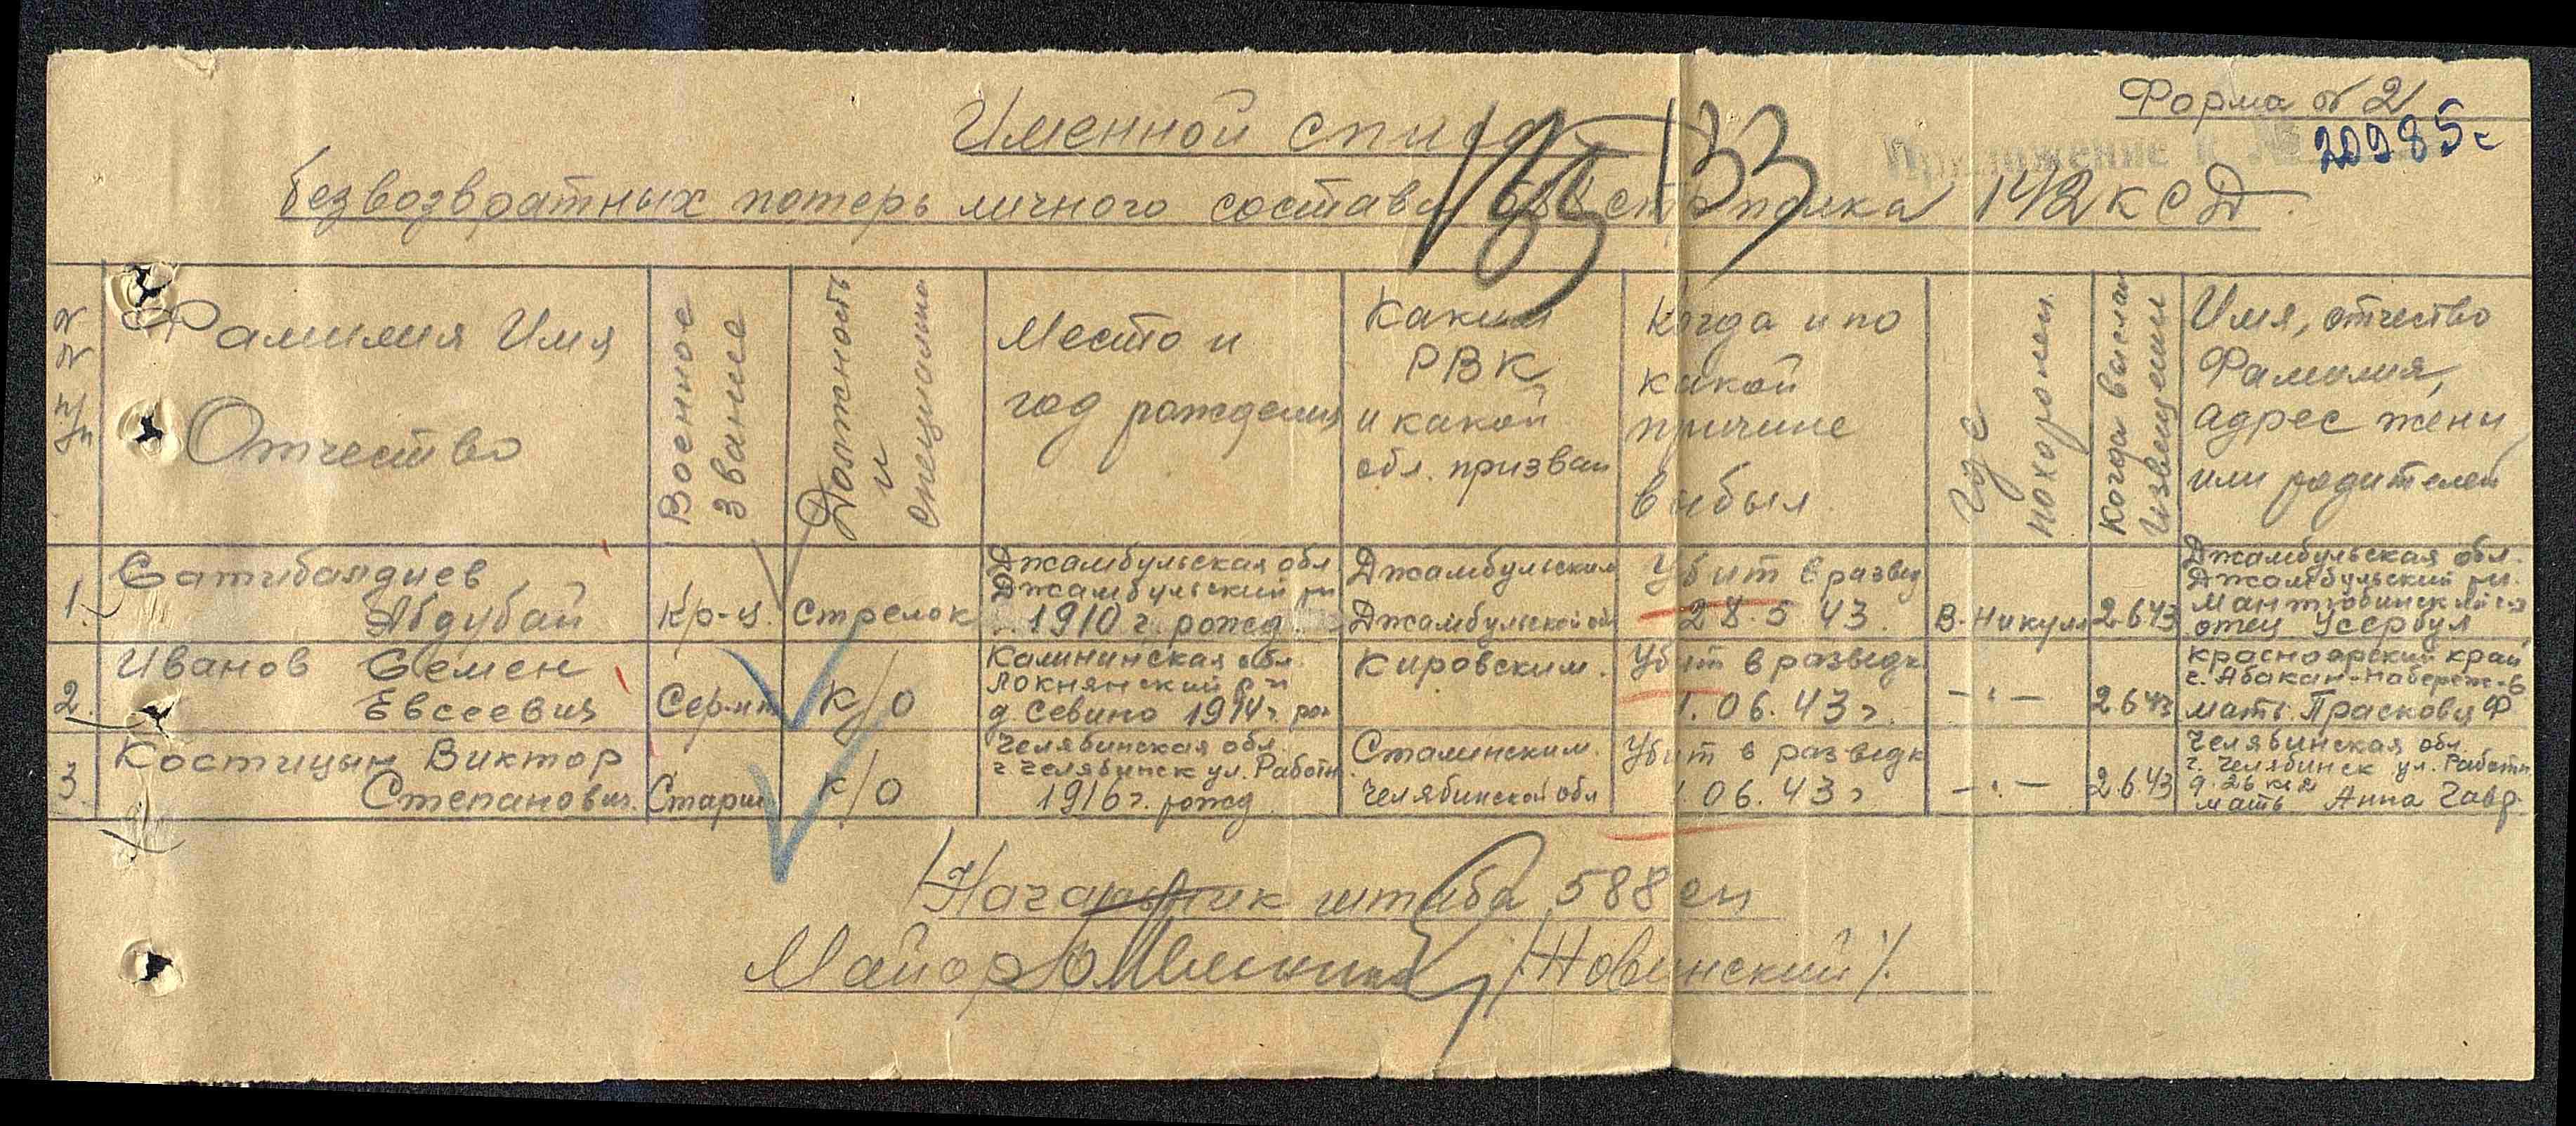 Форма № 2
20985с
Приложение к №
Именной список
133
безвозвратных потерь личного состава 588 стр. полка 142 КСД.
№ № п/п
Фамилия Имя
Отчество
Военное
звание
Должность
и
специальн.
Место и
год рождения
Каким
РВК
и какой
обл. призван
Когда и по
какой
причине
выбыл
Где
похоронен.
Когда выслан
извещении
Имя, отчество
Фамилия,
адрес жены
или родителей
1.
Сатибалдиев
Абдубай
Кр-ц.
Стрелок
Джамбульская обл
Джамбульский рн
1910 г. рожд.
Джамбульским
Джамбульской обл
Убит в развед
28.5.43.
В. Никулл
2.6.43
Джамбульская обл.
Джамбульский рн.
отец Усербул
2.
Иванов Семен
Евсеевич
Сер-нт
К/О
Калининская обл.
Локнянский р-н
д. Севино 1914 г. рож
Кировским.
Убит в разведк
1.06.43 г.
-"-
2.6.43
Красноярский край
г. Абакан-Набереж-6
мать Прасковья Ф
3
Костицын Виктор
Степанович.
Старш
К/О
Челябинская обл.
г. Челябинск ул. Работн
1916 г. рожд
Сталинским.
Челябинской обл
Убит в разведк
1.06.43 г
-"-
2.6.43
Челябинская обл.
г. Челябинск ул. Работн.
д. 26 кв 2
мать Анна Гавр.
Начальник штаба 588 сп
Майор /Новинский/.